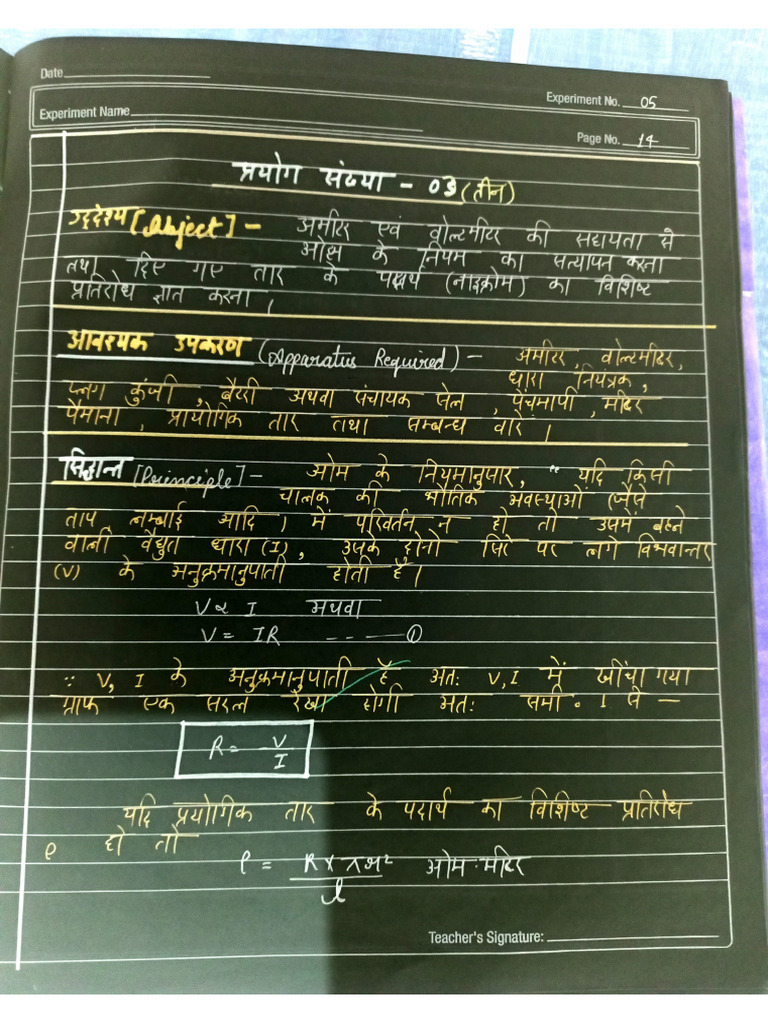 Date
Experiment No. 05
Experiment Name
Page No. 14
प्रयोग संख्या - 03 (तीन)
उद्देश्य [Object] - अमीटर एवं वोल्टमीटर की सहायता से
ओह्म के नियम का सत्यापन करना
तथा दिए गए तार के पदार्थ (नाइक्रोम) का विशिष्ट
प्रतिरोध ज्ञात करना ।
आवश्यक उपकरण (Apparatus Required) - अमीटर, वोल्टमीटर,
धारा नियंत्रक,
प्लग कुंजी, बैटरी अथवा संचायक सेल, पेंचमापी, मीटर
पैमाना, प्रायोगिक तार तथा सम्बन्ध तार ।
सिद्धान्त [Principle] - ओम के नियमानुसार, "यदि किसी
चालक की भौतिक अवस्थाओं (जैसे
ताप, लम्बाई आदि) में परिवर्तन न हो तो उसमें बहने
वाली वैद्युत धारा (I), उसके दोनो सिरे पर लगे विभवान्तर
(V) के अनुक्रमानुपाती होती है।
V ∝ I अथवा
V = IR -- — ①
∵ V, I के अनुक्रमानुपाती है अतः V, I में खींचा गया
ग्राफ एक सरल रेखा होगी अतः समी॰ 1 से —
R = V/I
यदि प्रयोगिक तार के पदार्थ का विशिष्ट प्रतिरोध
ρ हो तो
ρ = R × πr²/l ओम-मीटर
Teacher's Signature: